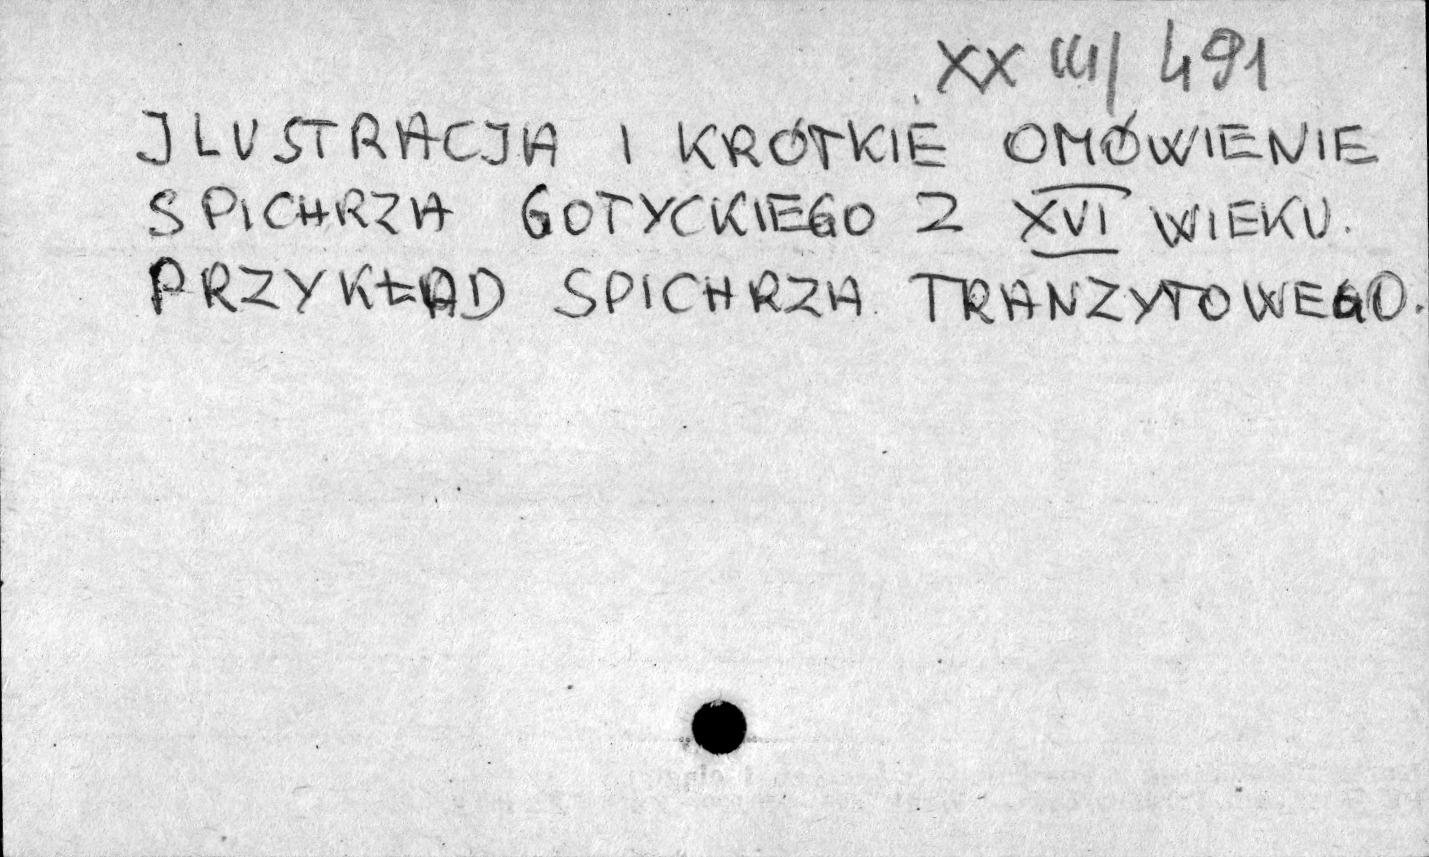 XXIII/491
JLUSTRACJA I KRÓTKIE OMÓWIENIE
SPICHRZA GOTYCKIEGO Z XVI WIEKU.
PRZYKŁAD SPICHRZA TRANZYTOWEGO.